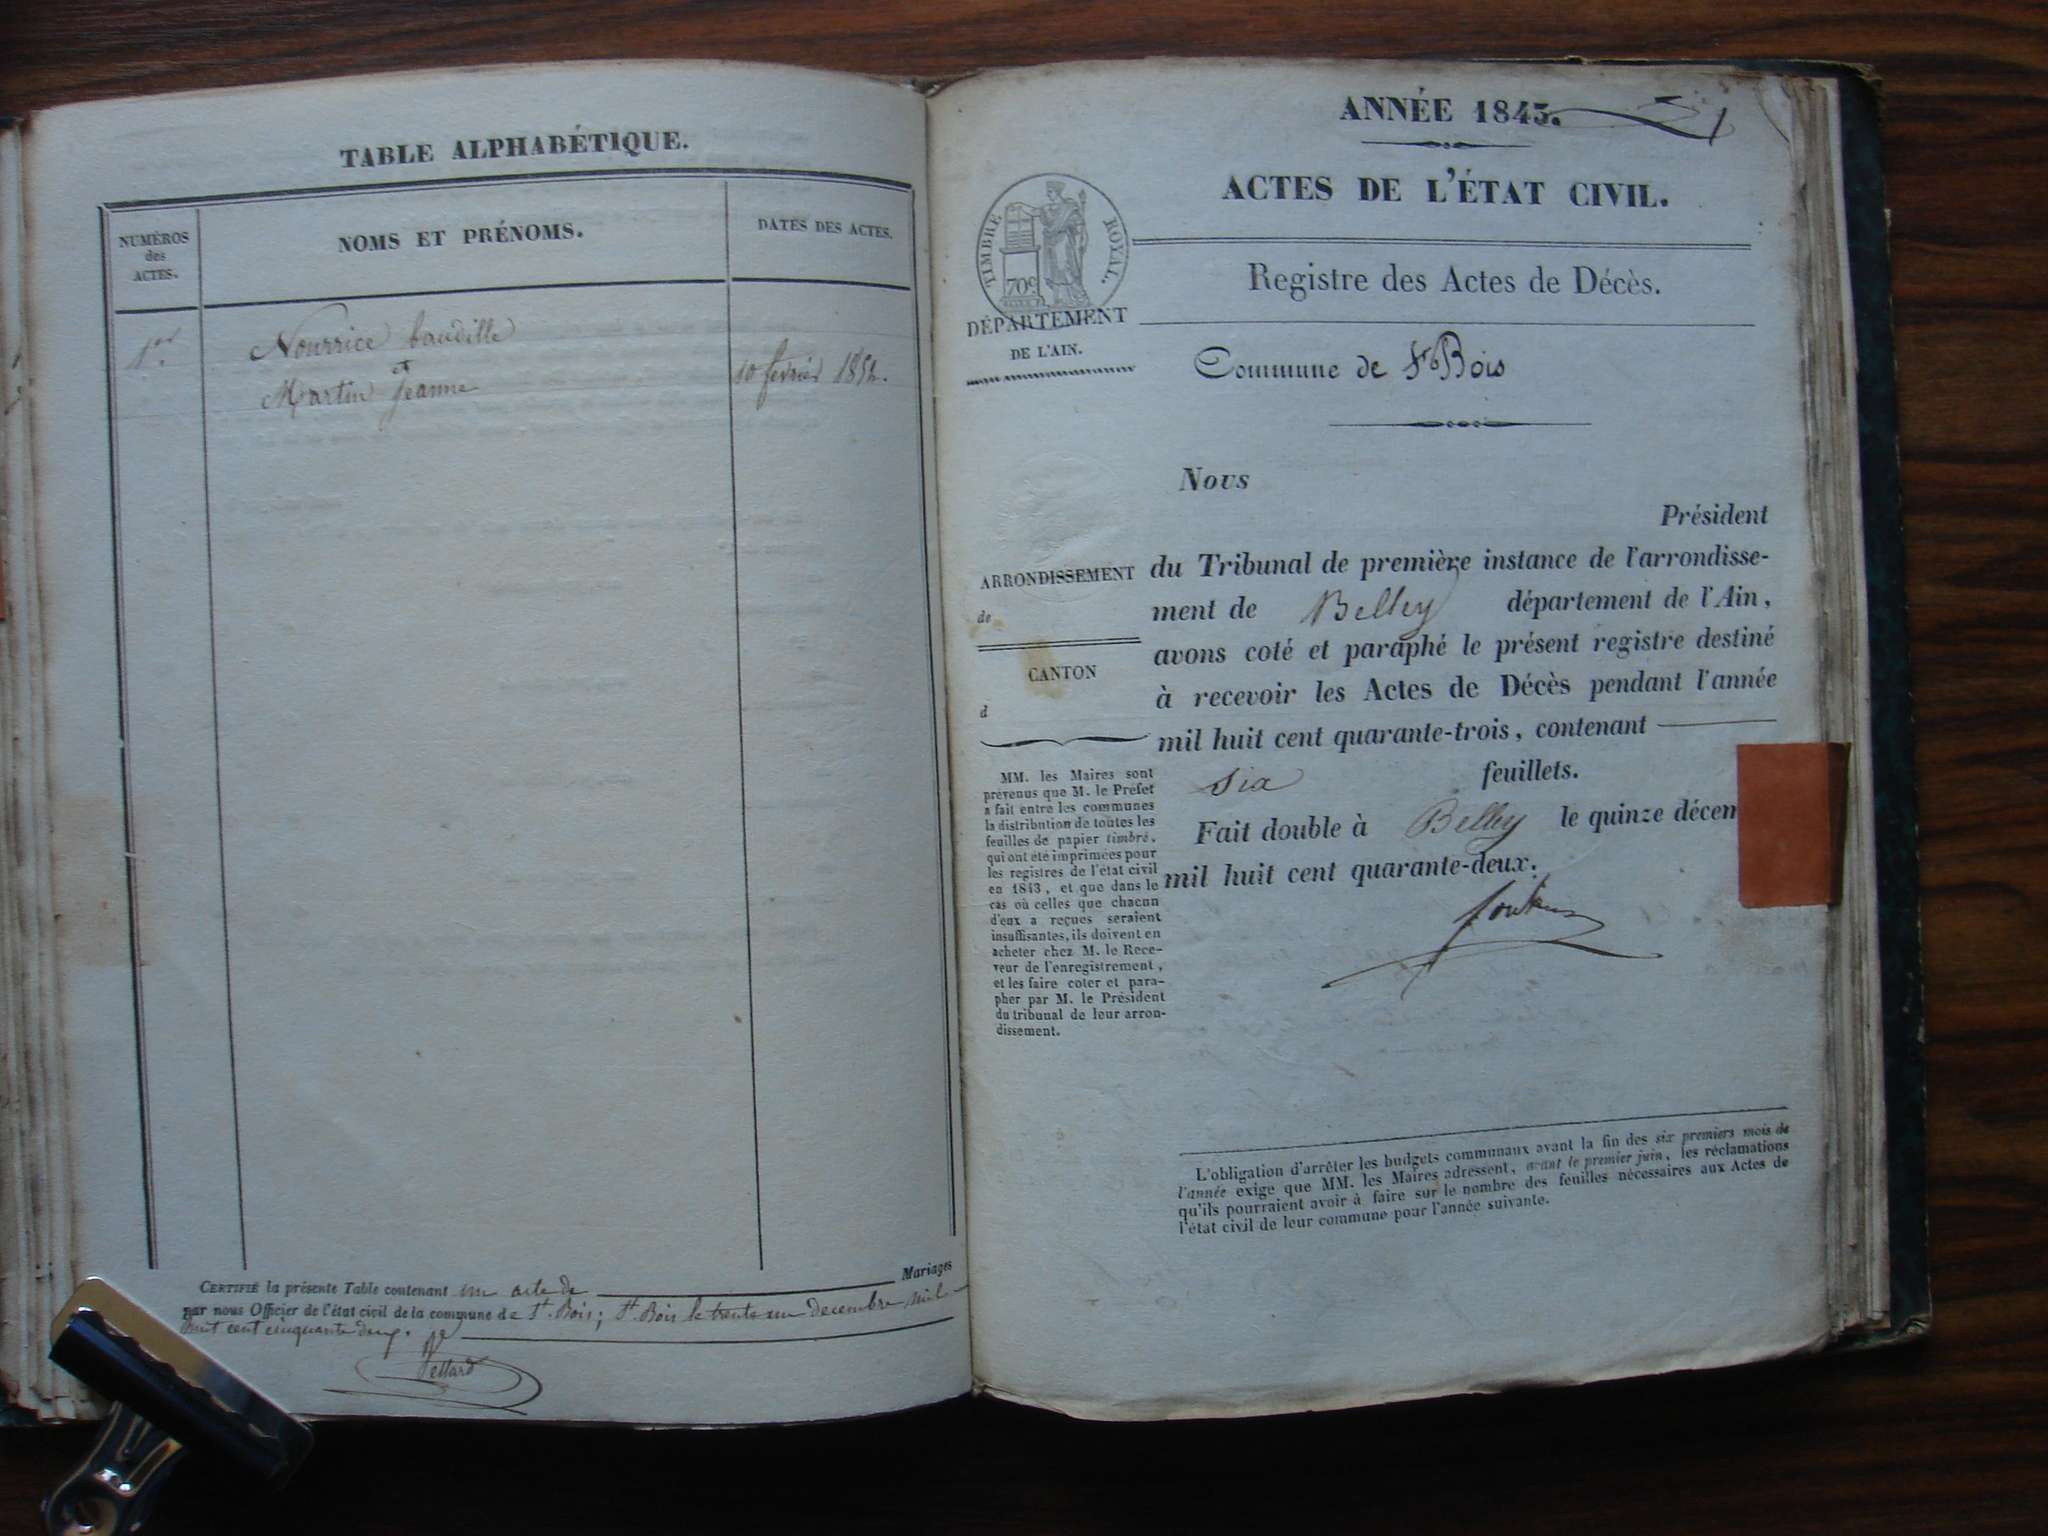 TABLE ALPHABÉTIQUE.
NUMÉROS
des
ACTES.
NOMS ET PRÉNOMS.
DATES DES ACTES.
1er.
Nourrice baudille
et
Martin Jeanne
10 février 1852.
CERTIFIÉ la présente Table contenant un acte de Mariages
par nous Officier de l'état civil de la commune de St. Bois; St. Bois le trente un decembre mil
huit cent cinquante deux.
ANNÉE 1843.
ACTES DE L'ÉTAT CIVIL.
TIMBRE ROYAL.
70c
Registre des Actes de Décès.
DÉPARTEMENT
DE L'AIN.
Commune de St Bois
Nous
Président
ARRONDISSEMENT
de
CANTON
d
du Tribunal de première instance de l'arrondisse-
ment de Belley département de l'Ain,
avons coté et paraphé le présent registre destiné
à recevoir les Actes de Décès pendant l'année
mil huit cent quarante-trois, contenant
six feuillets.
Fait double à Belley le quinze décem
mil huit cent quarante-deux.
MM. les Maires sont
prévenus que M. le Préfet
a fait entre les communes
la distribution de toutes les
feuilles de papier timbré,
qui ont été imprimées pour
les registres de l'état civil
en 1843, et que dans le
cas où celles que chacun
d'eux a reçues seraient
insuffisantes, ils doivent en
acheter chez M. le Rece-
veur de l'enregistrement,
et les faire coter et para-
pher par M. le Président
du tribunal de leur arron-
dissement.
L'obligation d'arrêter les budgets communaux avant la fin des six premiers mois de
l'année exige que MM. les Maires adressent, avant le premier juin, les réclamations
qu'ils pourraient avoir à faire sur le nombre des feuilles nécessaires aux Actes de
l'état civil de leur commune pour l'année suivante.